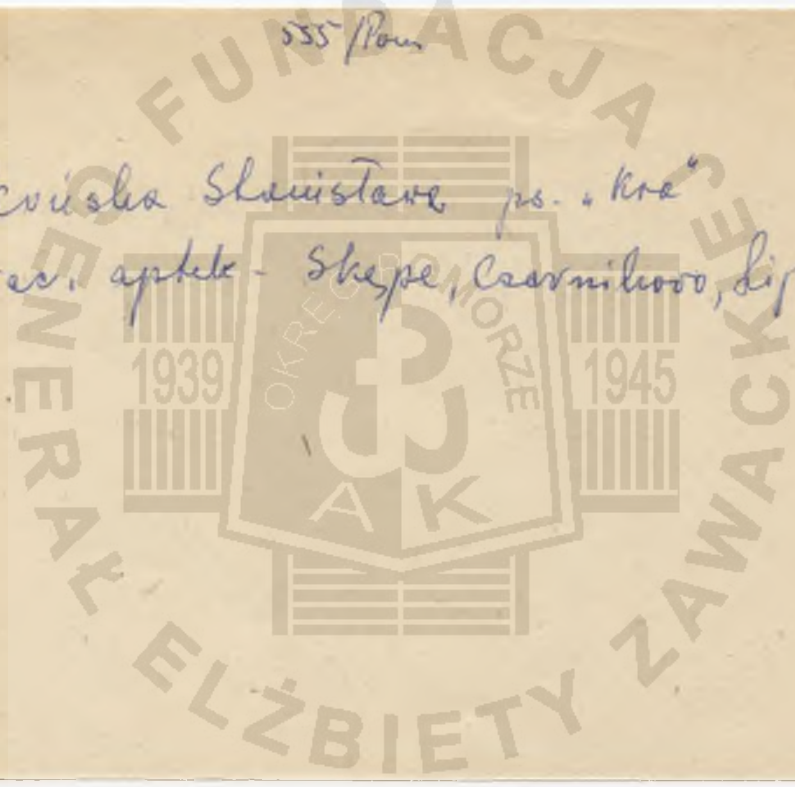 555/Pom
Stanisława ps. "Kra"
aptek - Skępe, Czernikowo, Lip
FUNDACJA
GENERAŁ ELŻBIETY ZAWACKIEJ
OKRĘG POMORZE
1939
1945
AK